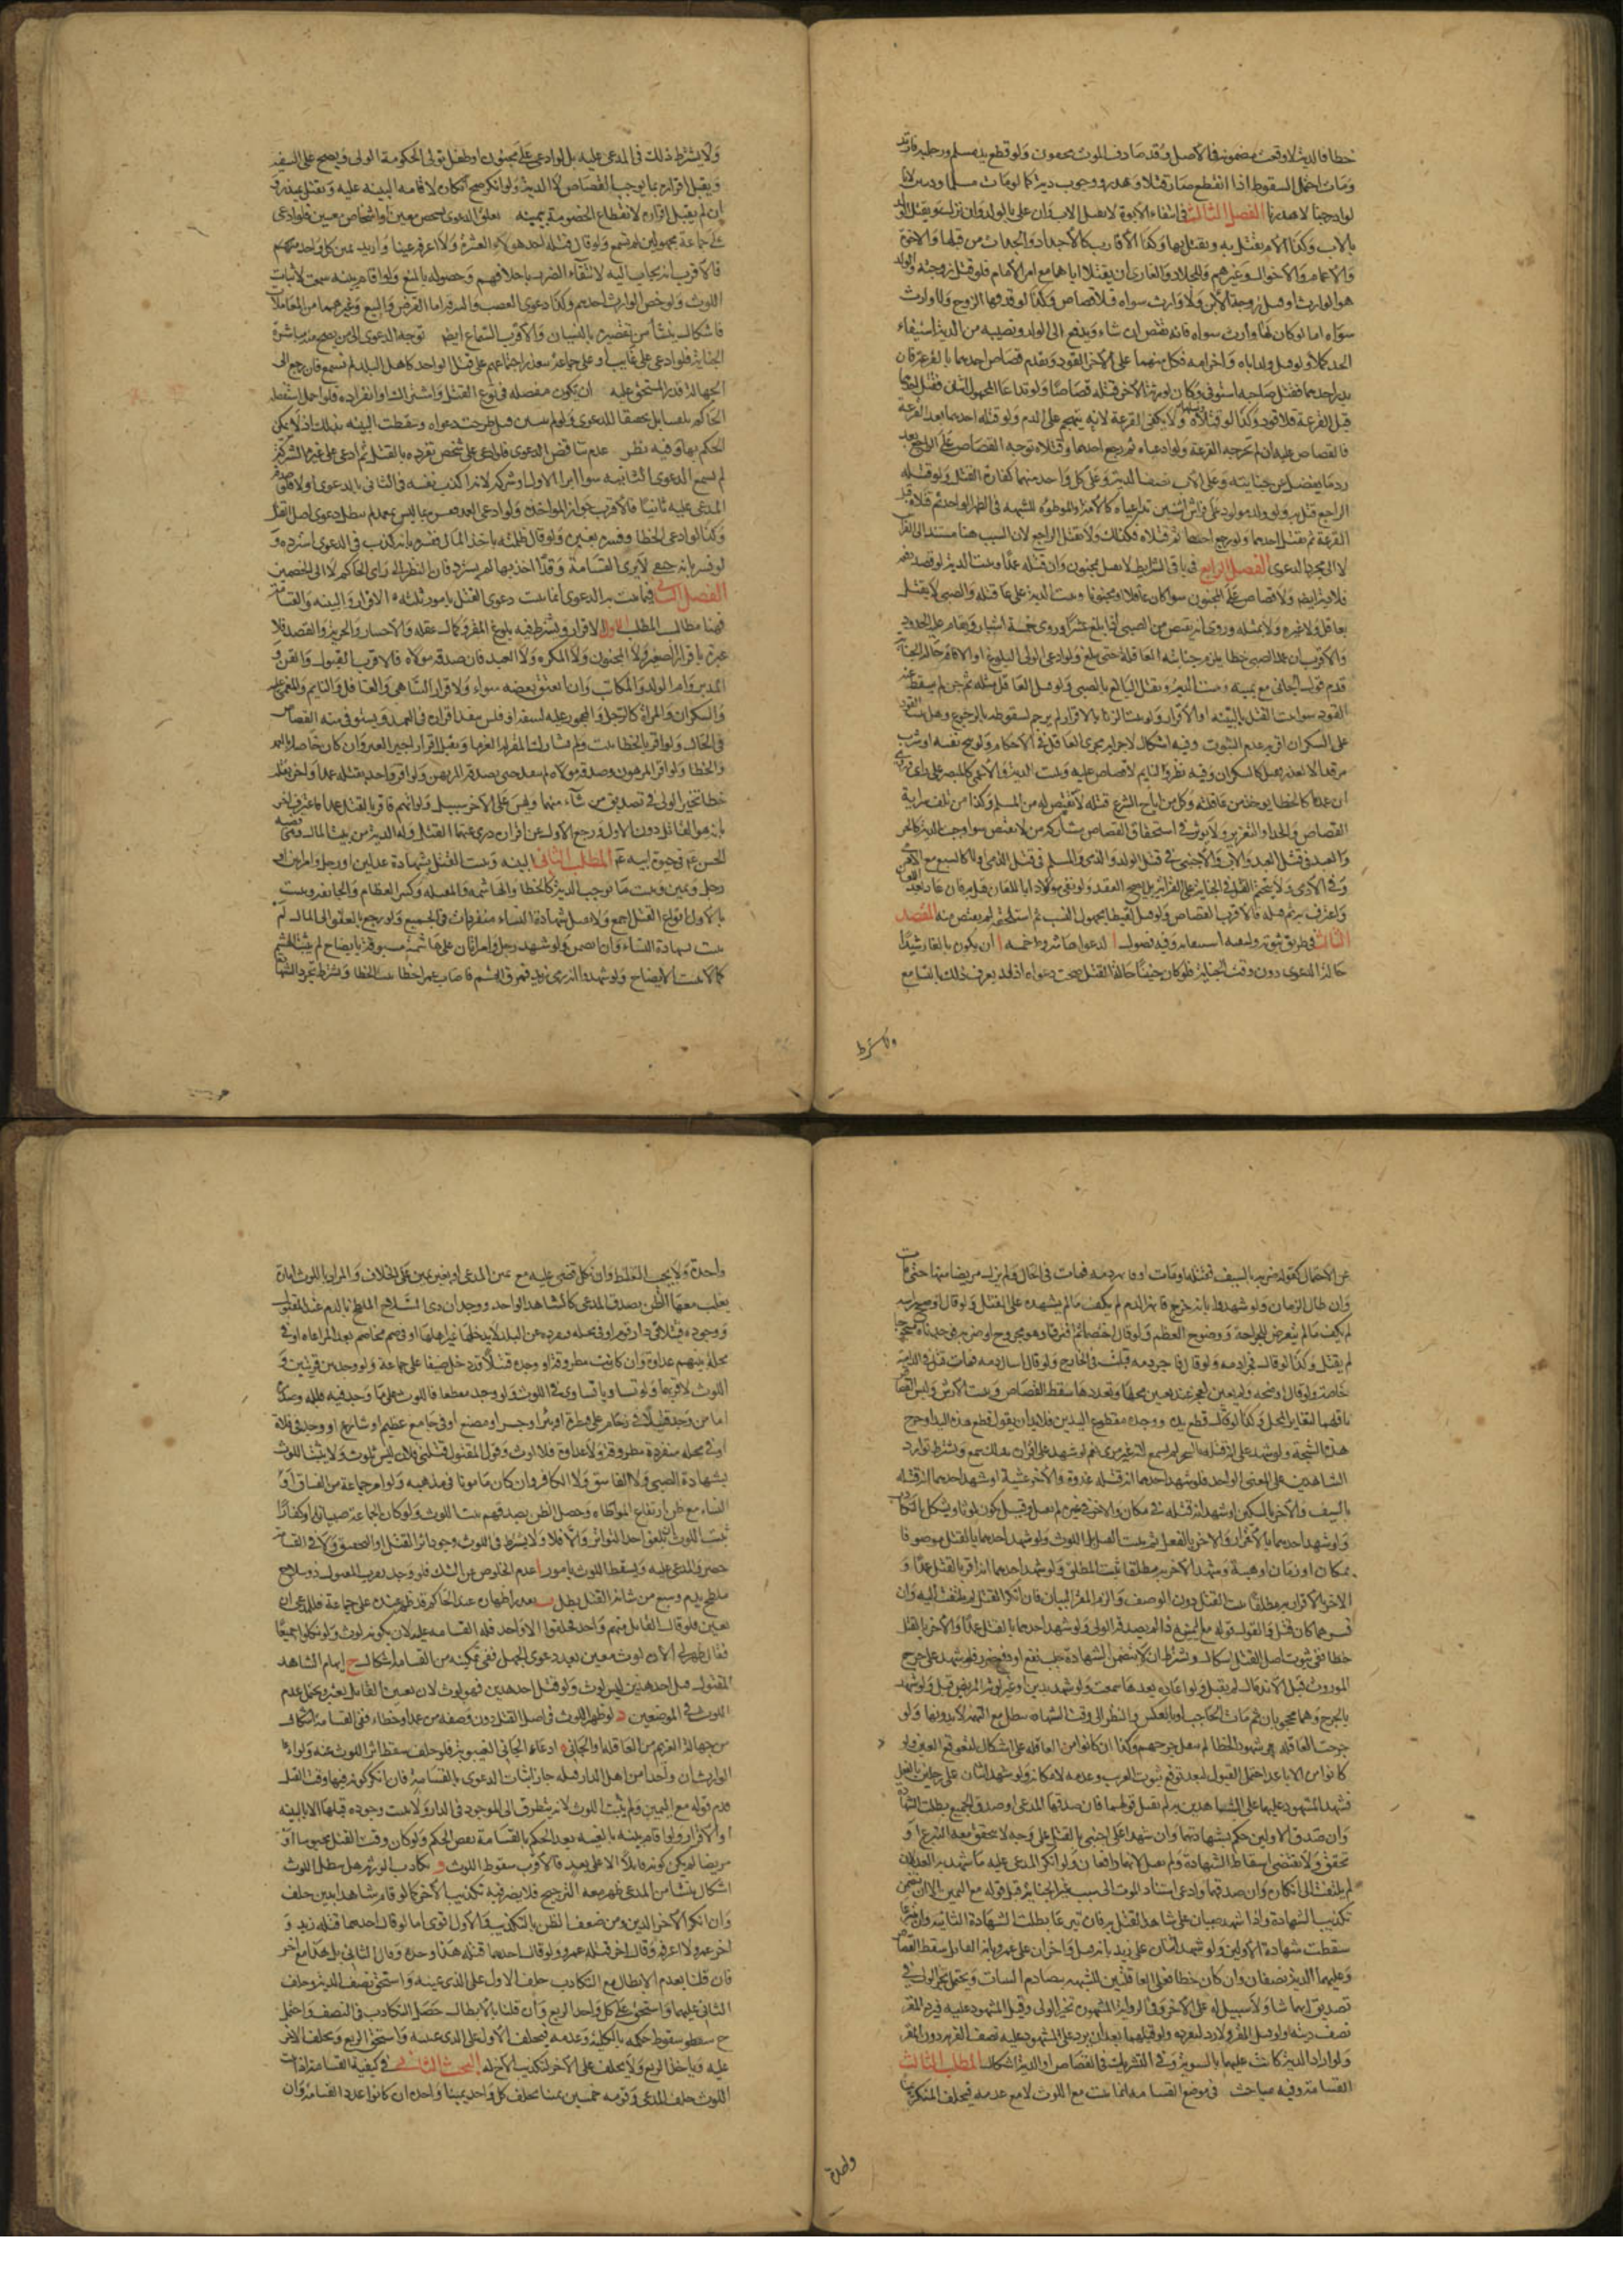 خطا فالدية لا وقعت مضمونة فالاصل وقد صادف الموت محقون ولو قطع يد مسلم ورجليه فارتد
ومات احتمل السقوط اذا انقطع ضمان قتلا وهدر ووجوب دية كما لو مات مسلما
الفصل الثالث في انتفاء الابوة لا يقتل الاب وان علا بالولد وان نزل ويقتل الولد
بالاب وكذا الام تقتل به ويقتل بها وكذا الاقارب كالاجداد والجدات من قبلها والاخوة
والاعمام والاخوال وغيرهم وللجلاد والغازي ان يقتلا اباهما مع امر الامام فلو قتل زوجته والولد
هو الوارث او قتل زوجة الابن ولا وارث سواه فلا قصاص وكذا لو قذفها الزوج ولا وارث
سواه اما لو كان لها وارث سواه فانه يقتص ان شاء ويدفع الى الولد نصيبه من الدية استيفاء
الحد كملا ولو قتل ولد اباه واخر امه فكل منهما على الاخر القود ويقدم قصاص احدهما بالقرعة فان
بدر احدهما فقتل صاحبه استوفى وكان لورثة الاخر قتله قصاصا ولو تداعا المجهول اثنان فقتله احدهما
قبل القرعة فلا قود وكذا لو قتلاه ولا يكفي القرعة لانه تهجم على الدم ولو قتله احدهما بعد القرعة
فالقصاص عليه ان لم تخرجه القرعة ولو ادعياه ثم رجع احدهما وقتلاه توجه القصاص على الراجع بعد
رد ما يفضل من جنايته وعلى الاب نصف الدية وعلى كل واحد منهما كفارة القتل ولو قتله
الراجع قتل به ولو ولد مولود على فراش اثنين تداعياه كالامة او الموطوءة للشبهة في الطهر الواحد ثم قتلاه قبل
القرعة لم يقتل احدهما ولو رجع احدهما ثم قتلاه فكذلك ولا يقتل الراجع لان النسب هنا مستند الى الفراش
لا الى مجرد الدعوى الفصل الرابع في باقي الشرايط لا يقتل مجنون وان قتله عمدا وتثبت الدية لو قصد دفعه
فلا دية ايض ولا قصاص على المجنون سوا كان عاقلا او مجنونا وتثبت الدية على عاقلته والصبي لا يقتل
بعاقل ولا غيره ولا بمثله وروي انه يقتص من الصبي اذا بلغ عشرا وروي خمسة اشبار ويقام عليه الحدود
والاقرب ان عمد الصبي خطا يلزم جنايته العاقلة حتى يبلغ ولو ادعى الولي البلوغ او الافاقة حالة الجناية
قدم قول الجاني مع يمينه وتثبت الدية ويقتل البالغ بالصبي ولو قتل العاقل مثله ثم جن لم يسقط عنه
القود سوا ثبت القتل بالبينة او الاقرار ولو ثبت الزنا بالاقرار لم يرجم لسقوطه بالرجوع وهل يثبت القود
على السكران اقربه عدم الثبوت وفيه اشكال لاجرائه مجرى العاقل في الاحكام ولو بنج نفسه او شرب
مرقدا لا لعذر قيل كالسكران وفيه نظر والنايم لا قصاص عليه وتثبت الدية والاعمى كالمبصر على راي
ان عمده كالخطا يوخذ من عاقلته وكل من اباح الشرع قتله لا يقتص له من المسلم وكذا من تلف بسراية
القصاص والحد او التعزير ولا يوثر في استحقاق القصاص مشاركة من لا يقتص سوا وجب الدية كالحر
والعبد في قتل العبد والاب والاجنبي في قتل الولد والذمي والمسلم في قتل الذمي او لا كالسبع مع الادمي
ولو قتل لقيطا مجهول النسب ثم استلحقه لم يقتص منه المقصد
الثالث في طريق ثبوته وفيه فصول ا الدعوى وشروطها خمسة ا ان يكون بالغا رشيدا
حالة الدعوى دون وقت الجناية فلو كان جنينا حالة القتل صحت دعواه اذ قد يعرف ذلك بالتسامع
ولا يشترط
ولا يشترط ذلك في المدعى عليه بل لو ادعى على مجنون او طفل تولى الحكومة الولي ويصح على السفيه
ويقبل اقراره بما يوجب القصاص لا الدية ولو انكر صح انكاره لاقامة البينة عليه ويقبل يمينه و
ان لم يقبل اقراره لانقطاع الخصومة بيمينه تعلق الدعوى بشخص معين او اشخاص معينين فلو ادعى
على جماعة مجهولين لم تسمع ولو قال قتله احد هولاء العشرة ولا اعرفه عينا واريد يمين كل واحد منهم
فالاقرب انه يجاب اليه لانتفاء الضرر باحلافهم وحصوله بالمنع ولو اقام بينة سمعت لاثبات
اللوث ولو خص الوارث احدهم وكذا دعوى الغصب والسرقة اما القرض والبيع وغيرهما من المعاملات
فاشكال ينشأ من تقصيره بالنسيان والاقرب السماع ايض توجه الدعوى الى من يصح منه مباشرة
الجناية فلو ادعى على غايب او على جماعة يتعذر اجتماعهم على قتل الواحد كاهل البلد لم تسمع فان رجع الى
الممكن سمعت ان يكون مفصلة في نوع القتل واشتراك او انفراده فلو اجمل استفصله
الحاكم وليس تلقينا بل تحقيقا للدعوى ولو لم يبين قيل طرحت دعواه وسقطت البينة بذلك اذ لا يمكن
الحكم بها وفيه نظر عدم تناقض الدعوى فلو ادعى على شخص تفرده بالقتل ثم ادعى على غيره الشركة
لم تسمع الدعوى الثانية سوا ابرا الاول او شركه لانه اكذب نفسه في الثاني بالدعوى اولا فلو صدقه
المدعى عليه ثانيا فالاقرب جواز المواخذة ولو ادعى العمد ففسره بما ليس بعمد لم يبطل دعوى اصل القتل
وكذا لو ادعى الخطا وفسره بغيره ولو قال ظلمته باخذ المال ففسره بانه كذب في الدعوى استرده و
لو فسر بانه حنفي لا يرى القسامة وقد اخذ بها لم يسترد فان النظر الى راي الحاكم لا الى الخصمين
الفصل الثاني فيما يثبت به الدعوى انما يثبت دعوى القتل بامور ثلثة الاقرار والبينة والقسامة
فهنا مطالب المطلب الاول الاقرار ويشترط فيه بلوغ المقر وكمال عقله والاختيار والحرية والقصد فلا
عبرة باقرار الصغير ولا المجنون ولا المكره ولا العبد فان صدقه مولاه فالاقرب القبول والقن و
المدبر وام الولد والمكاتب وان انعتق بعضه سواء ولا اقرار الساهي والغافل والنايم والمغمى عليه
والسكران والمرأة كالرجل والمحجور عليه لسفه او فلس ينفذ اقراره في العمد ويستوفى منه القصاص
في الحال ولو اقر بالخطا ثبت ولم يشارك المقر له الغرما ويقبل اقرار اجير الغير وان كان خاصا بالعمد
والخطا ولو اقر المرهون وصدقه مولاه لم ينفذ حتى يصدقه المرتهن ولو اقر واحد بقتله عمدا واخر بقتله
خطا تخير الولي في تصديق من شاء منهما وليس على الاخر سبيل ولو اتهم فاقر بالقتل عمدا فاعترف اخر
بانه هو القاتل دون الاول ورجع الاول عن اقراره درئ عنهما القتل والدية من بيت المال وهي قضية
الحسن ع في حيوة ابيه ع المطلب الثاني البينة ويثبت القتل بشهادة عدلين او رجل وامراتين او
رجل ويمين ويثبت ما يوجب الدية كالخطا والهاشمة والمنقلة وكسر العظام والجايفة ويثبت
بالاول انواع القتل اجمع ولا يقبل شهادة النساء منفردات في الجميع ولو رجع بالعفو الى المال لم
يثبت بشهادة النساء وان انضممن ولو شهد رجل وامراتان على هاشمة مسبوقة بايضاح لم يثبت الهشم
كما لا يثبت الايضاح ولو شهدوا انه رمى زيدا فمرق السهم فاصاب عمرا خطا ثبت الخطا ويشترط تجرد الشهادة
عن الاحتمال كقوله ضربه بالسيف فقتله او مات او فانهر دمه فمات في الحال او لم يزل مريضا منها حتى مات
وان طال الزمان ولو شهدوا بانه جرح فانهر الدم لم يكف ما لم يشهد على القتل ولو قال اوضح راسه
لم يكف ما لم يتعرض للجراحة ووضوح العظم ولو قال اختصما ثم افترقا وهو مجروح او ضربه فوجدناه مشجوجا
لم يقبل وكذا لو قال فجرى دمه ولو قال فاجرى دمه قبلت في الجارح ولو قال اسال دمه فمات قبلت في الدامية
خاصة ولو قال اوضحه ولم يعين لعجزه عند تعيين محلها وتعددها سقط القصاص ويثبت الارش وليس القصاص
باقلهما لتغاير المحل وكذا لو قال قطع يده ووجد مقطوع اليدين فلابد ان يقول قطع هذه اليد او جرح
هذه الشجة ولو شهد على انه قتله بالسحر لم يسمع لانه غير مرئي نعم لو شهد على اقراره بذلك سمع ويشترط توارد
الشاهدين على المعنى الواحد فلو شهد احدهما انه قتله غدوة والاخر عشية او شهد احدهما انه قتله
بالسيف والاخر بالسكين او شهد انه قتله في مكان والاخر في غيره لم يقبل وقيل يكون لوثا ويشكل بالتكاذب
ولو شهد احدهما بالاقرار والاخر بالفعل لم يثبت القتل بل اللوث ولو شهد احدهما بالقتل موصوفا
بمكان او زمان او هيئة وشهد الاخر به مطلقا ثبت المطلق ولو شهد احدهما انه اقر بالقتل عمدا و
الاخر بالاقرار به مطلقا ثبت القتل دون الوصف والزم المقر البيان فان انكر القتل لم يلتفت اليه وان
فسره بما كان قبل والقول قوله مع اليمين اذا لم يصدقه الولي ولو شهد احدهما بالقتل عمدا والاخر بالقتل
خطا ففي ثبوت اصل القتل اشكال ويشترط ان لا يتضمن الشهادة جلب نفع او دفع ضرر فلو شهد على جرح
المورث قبل الاندمال لم يقبل ولو اعاد بعدها سمعت ولو شهد بدين او غيره لمورثه المريض قبل ولو شهد
بالجرح وهما محجوبان ثم مات الحاجب او بالعكس فالنظر الى وقت الشهادة تبطل مع التهمة لا بدونها ولو
جرحت العاقلة شهود الخطا لم يقبل جرحهم وكذا ان كانوا من العاقلة على اشكال
كانوا من الاباعد احتمل القبول لبعد توقع ثبوت الغرم وعدمه لامكانه ولو شهد اثنان على رجلين بالقتل
فشهد المشهود عليهما على الشاهدين به لم يقبل قولهما فان صدقهما المدعي او صدق الجميع بطلت الشهادة
وان صدق الاولين حكم بشهادتهما وان شهدا على اجنبي بالقتل على وجه لا يتحقق معه التبرع او
تحقق ولا يقتضي اسقاط الشهادة ولم يقبل لانهما دافعان ولو انكر المدعى عليه ما شهد به العدلان
لم يلتفت الى انكاره وان صدقهما وادعى استناد الموت الى سبب غير الجناية قبل قوله مع اليمين الا ان يتضمن
تكذيب الشهادة واذا شهد اجنبيان على شاهدي القتل به فان تبرعا بطلت الشهادة الثانية وان لم يتبرعا
سقطت شهادة الاولين ولو شهد اثنان على زيد بانه قتل واخران على عمرو بانه القاتل سقط القصاص
وعليهما الدية نصفان وان كان خطا فعلى العاقلتين للشبهة بتصادم البينات ويحتمل تخير الولي في
تصديق ايهما شاء ولا سبيل له على الاخر وفي الرواية المشهورة تخير الولي وقبل المشهود عليه فيرد المقر
نصف دية ولو قتل المقر ولا رد لتفرده ولو قتلهما بعد ان يرد على المشهود عليه نصف الدية دون المقر
ولو اراد الدية كانت عليهما بالسوية وفي التشريك في القصاص او الدية اشكال المطلب الثالث
القسامة وفيه مباحث في موضع القسامة انما يثبت مع اللوث لا مع عدمه فيحلف المنكر يمينا
واحدة
واحدة ولا يجب التغلظ وان نكل قضي عليه مع يمين المدعي او بغير يمين على الخلاف والمراد باللوث امارة
يغلب معها الظن بصدق المدعي كالشاهد الواحد ووجدان ذي السلاح الملطخ بالدم عند المقتول
ووجوده قتيلا في دار قوم او في محلة منفردة عن البلد لا يدخلها غير اهلها او في صم مخاصم بعد المراماة او في
محلة بينهم عداوة وان كانت مطروقة او وجد قتيلا قد دخل ضيفا على جماعة ولو وجد بين قريتين و
اللوث لاقربهما ولو تساويا تساوى في اللوث ولو وجد مقطعا فاللوث على ما وجد فيه قلبه وصدره
اما من وجد قتيلا في زحام على قنطرة او بئر او جسر او مصنع او في جامع عظيم او شارع او وجد في فلاة
او في محلة منفردة مطروقة ولا عداوة فلا لوث وقول المقتول قتلني فلان ليس بلوث ولا يثبت اللوث
بشهادة الصبي ولا الفاسق ولا الكافر وان كان مامونا في مذهبه ولو اخبر جماعة من الفساق او
النساء مع ظن ارتفاع المواطاة وحصل الظن بصدقهم ثبت اللوث ولو كان الجماعة صبيانا او كفارا
ثبت اللوث ان بلغوا حد التواتر والا فلا ولا يشترط في اللوث وجود اثر القتل ولا في القسامة
حضور المدعى عليه ويسقط اللوث بامور ا عدم الخلوص عن الشك فلو وجد بقرب المقتول ذو سلاح
ملطخ بدم وسبع من شانه القتل بطل ب تعذر اظهاره عند الحاكم فلو ظهر عنده على جماعة فللمدعي ان
يعين فلو قال القاتل منهم واحد فحلفوا الا واحد فله القسامة عليه لان نكوله لوث ولو نكلوا جميعا
فقال ظهر لي الان لوث معين بعد دعوى الجهل ففي تمكينه من القسامة اشكال ج ابهام الشاهد
المقتول قتل احد هذين ليس لوث ولو قتل احد هذين فهو لوث لان تعيين القاتل يعسر ويحتمل عدم
اللوث في الموضعين د لو ظهر اللوث في اصل القتل دون وصفه من عمد او خطاء ففي القسامة اشكال
من جهالة الغريم من العاقلة او الجاني ه ادعاء الجاني الغيبوبة فلو حلف سقط اثر اللوث عنه ولو ادعا
الوارث ان واحدا من اهل الدار قتله جاز اثبات الدعوى بالقسامة فان انكر كونه فيها وقت القتل
قدم قوله مع اليمين ولم يثبت اللوث لانه يتطرق الى الموجود في الدار ولا يثبت وجوده قبلها الا بالبينة
او الاقرار ولو اقام بينة بالغيبة بعد الحكم بالقسامة نقض الحكم ولو كان وقت القتل محبوسا او
مريضا لم يكن كونه قاتلا الا على بعد فالاقرب سقوط اللوث و تكاذب الورثة هل يبطل اللوث
اشكال ينشأ من ان المدعي ظهر معه الترجيح فلا يضر فيه تكذيب الاخر كما لو اقام شاهدا بدين حلف
وان انكر الاخر الدين ومن ضعف الظن بالتكذيب والاول اقوى اما لو قال احدهما قتله زيد و
اخر عمرو لا اعرفه وقال اخر قتله عمرو ولو قال احدهما قتله هذا وحده وقال الثاني بل هذا مع اخر
فان قلنا بعدم الابطال مع التكاذب حلف الاول على الذي عينه واستحق نصف الدية وحلف
الثاني عليهما واستحق على كل واحد الربع وان قلنا بالابطال حصل التكاذب في النصف واحتمل
ح سقوط حكمه بالكلية وعدمه فيحلف الاول على الذي عينه واستحق الربع ويحلف الاخر
عليه وياخذ الربع ولا يحلف على الاخر لتكذيب الاخ له البحث الثاني في كيفية القسامة اذا ثبت
اللوث حلف المدعي وقومه خمسين يمينا يحلف كل واحد يمينا واحدة ان كانوا عدد القسامة وان